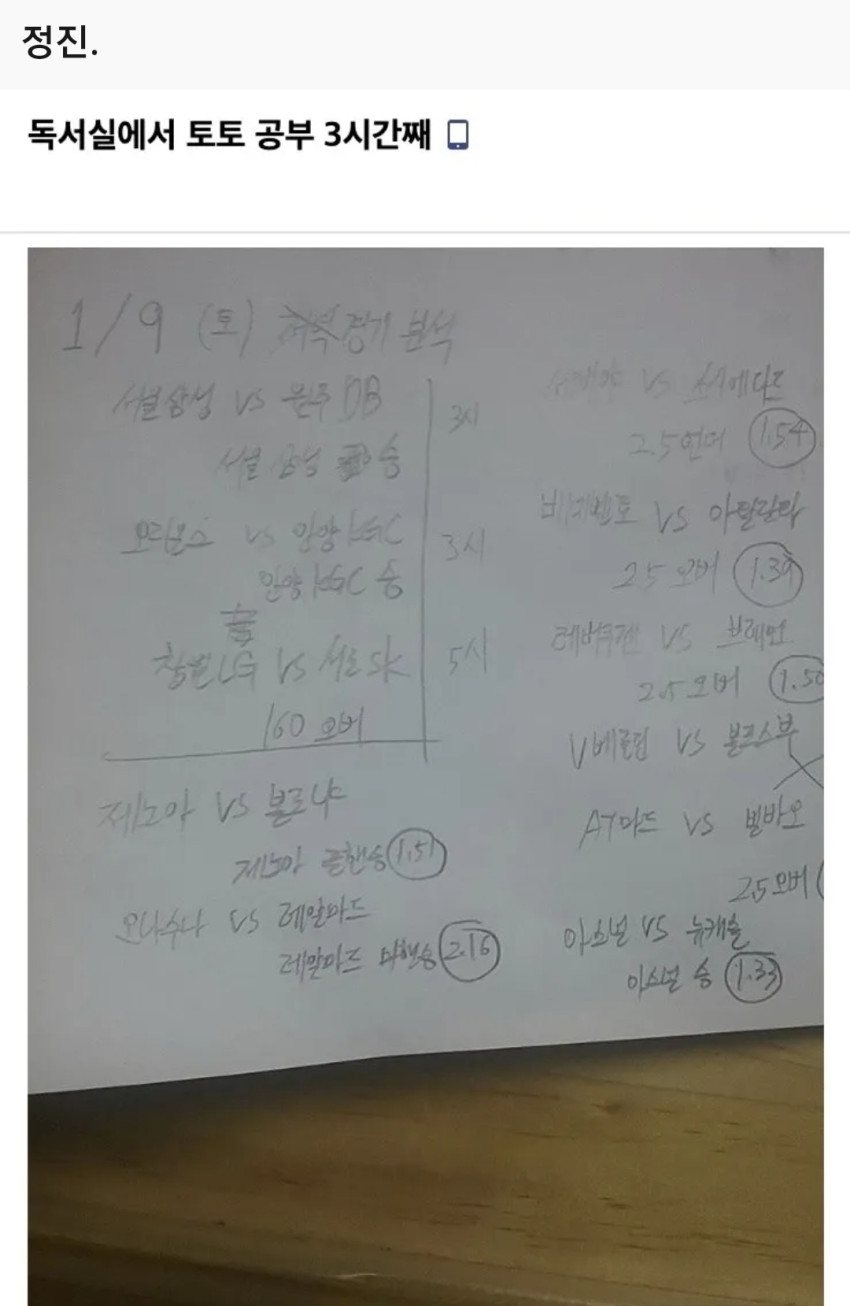 정진.
독서실에서 토토 공부 3시간째
1/9 (토) 저녁 경기 분석
서울삼성 vs 원주 DB
3시
서울 삼성 승
오리온스 vs 안양 KGC
3시
안양 KGC 승
창원LG vs 서울 SK
5시
160 오버
제노아 vs 볼로냐
제노아 플핸승 1.51
오사수나 vs 레알마드
레알마드 마핸승 2.16
vs 소시에다드
2.5언더 1.54
베네벤토 vs 아탈란타
2.5 오버 1.39
레버쿠젠 vs 브레멘
2.5오버 1.50
V베를린 vs 볼프스부
AT마드 vs 빌바오
2.5오버
아스널 vs 뉴캐슬
아스널 승 1.33